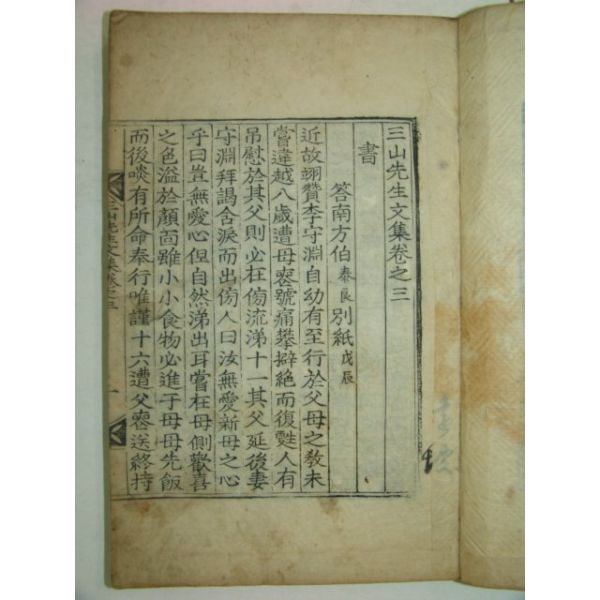 三山先生文集卷之三
書
答南方伯泰良別紙戊辰
近故翊贊李守淵自幼有至行於父母之敎未
嘗違越八歲遭母喪號痛攀擗絶而復甦人有
吊慰於其父則必在傍流涕十一其父延後妻
守淵拜謁含淚而出傍人曰汝無愛新母之心
乎曰豈無愛心但自然涕出耳嘗在母側歡喜
之色溢於顔面雖小小食物必進于母母先飯
而後啖有所命奉行唯謹十六遭父喪送終持
三山先生文集卷之三
一